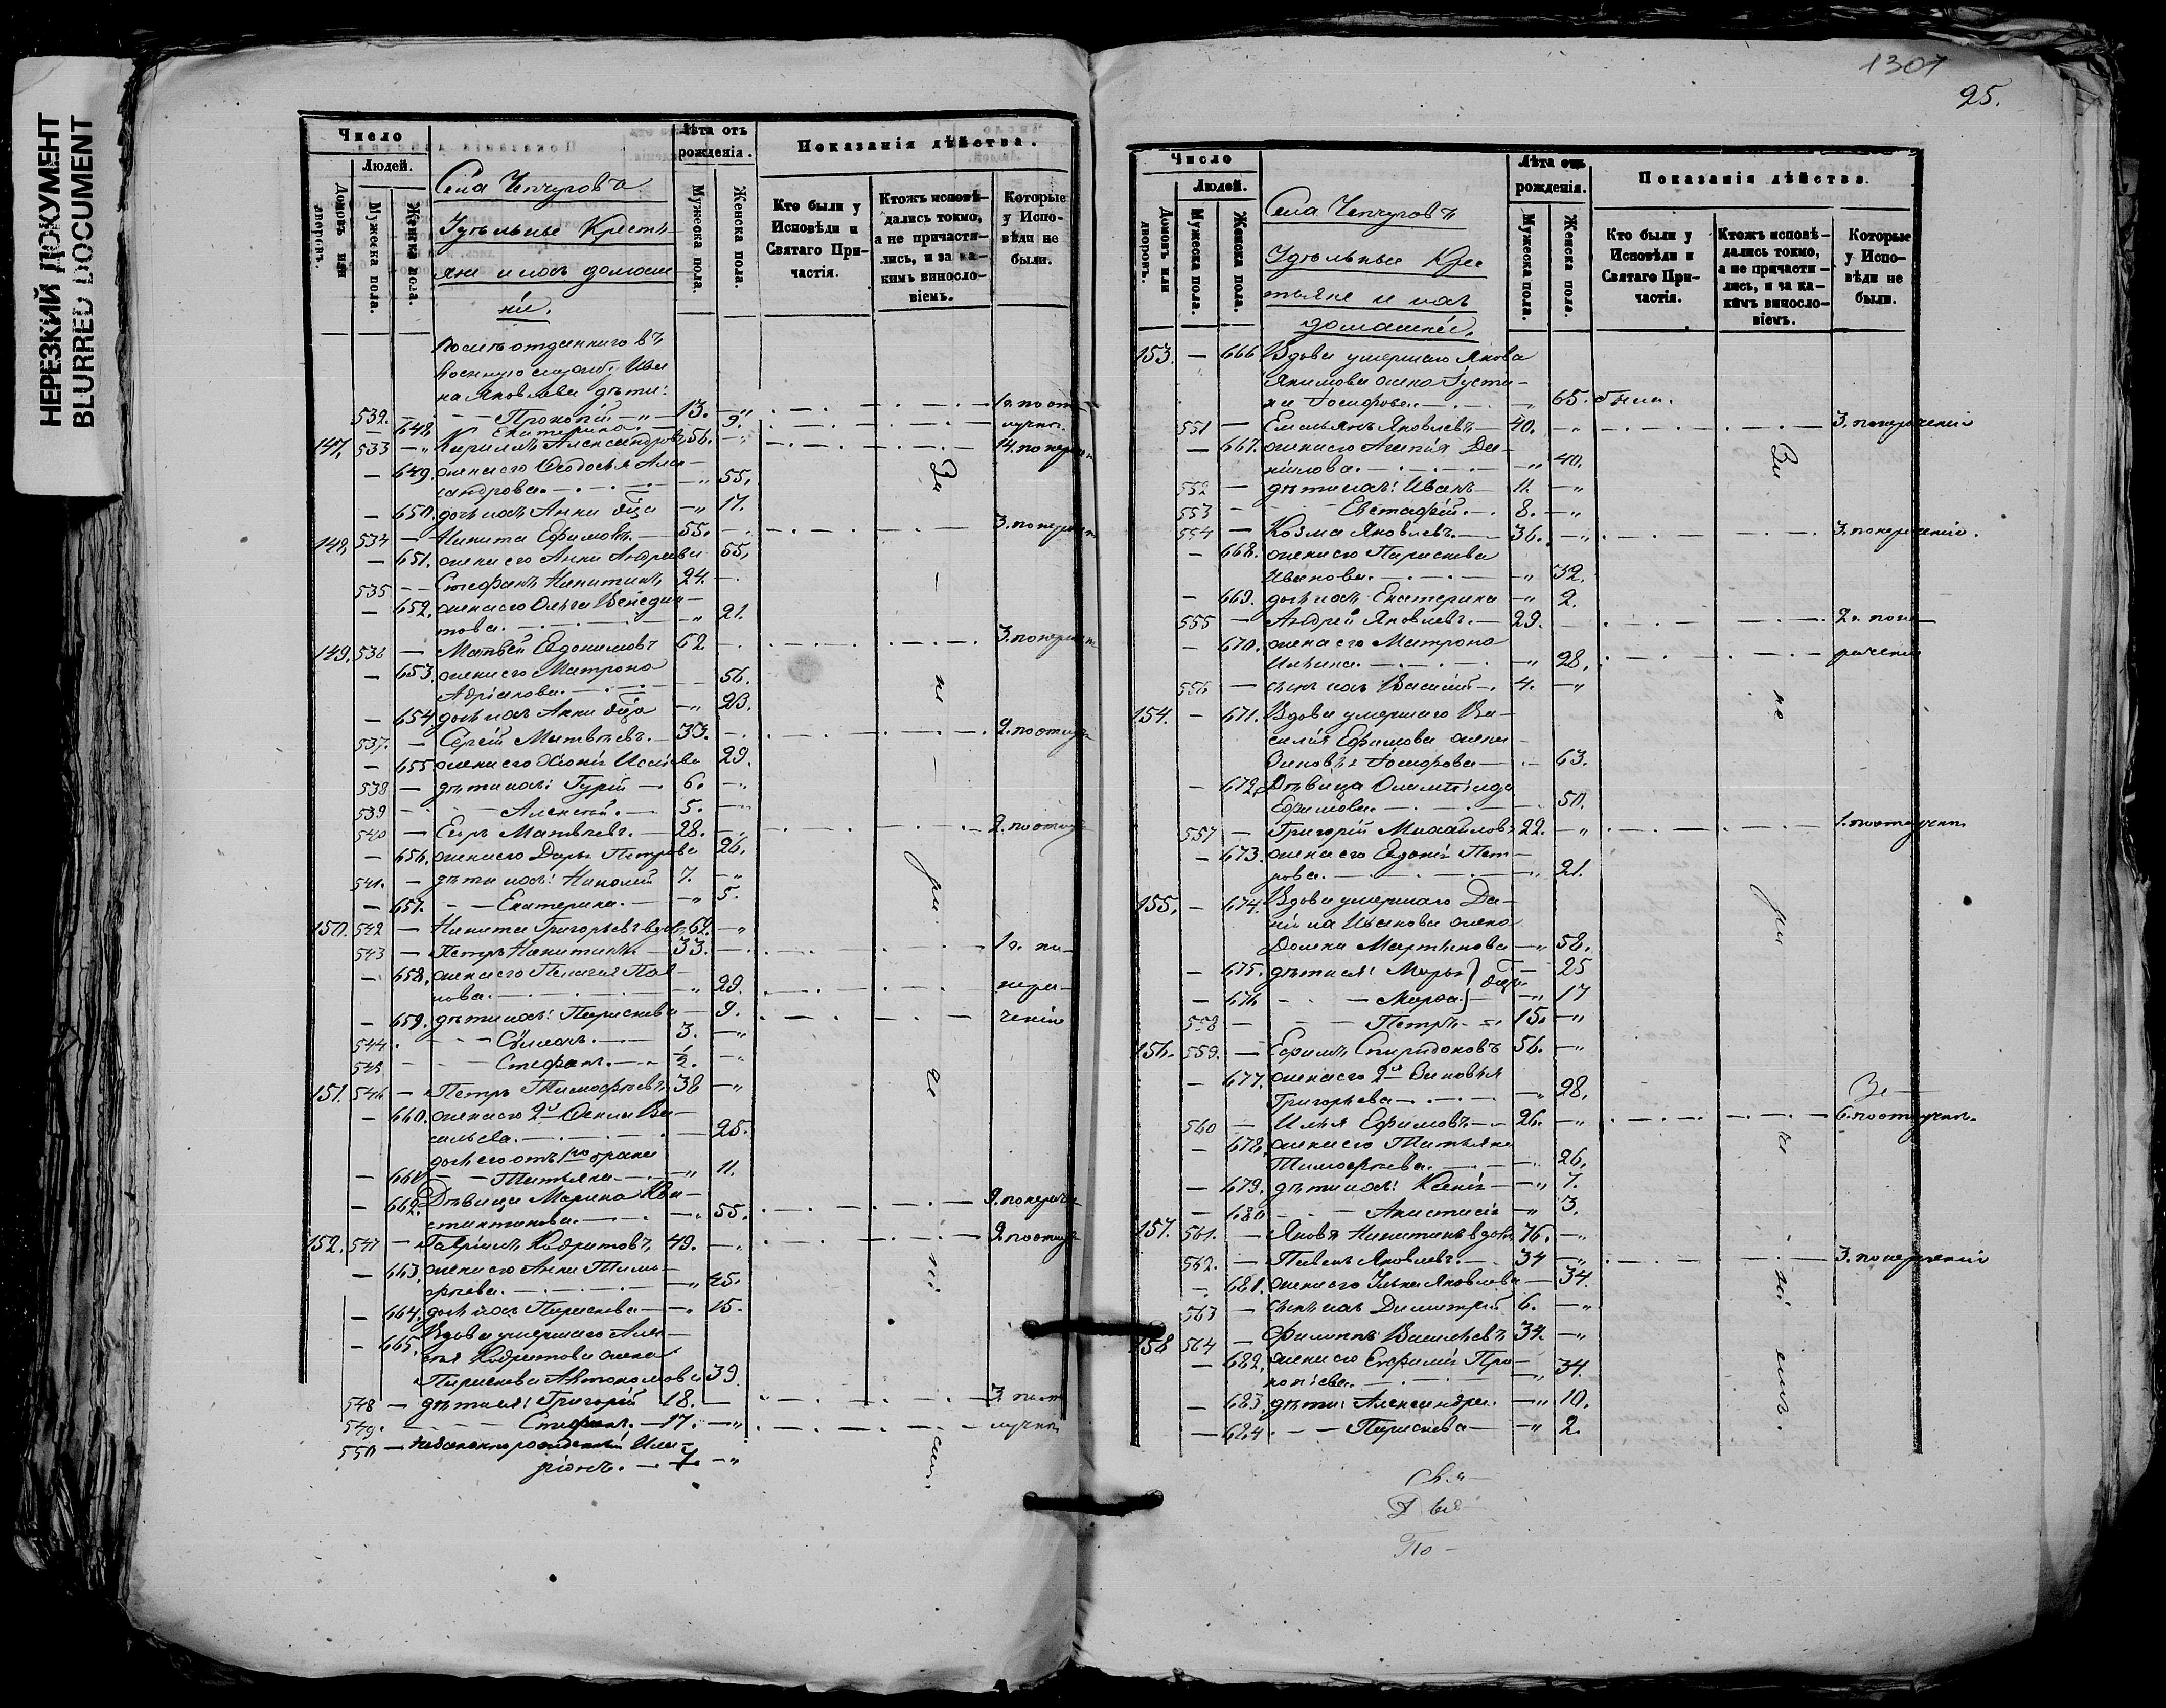 НЕРЕЗКИЙ ДОКУМЕНТ
BLURRED DOCUMENT
Число
Людей.
Домовъ или дворовъ.
Мужеска пола.
Женска пола.
Села Чепчуговъ
Удѣльные Крестья-
яне и ихъ домаш-
ніе.
Лѣта отъ рожденія.
Мужеска пола.
Женска пола.
Показанія дѣйства.
Кто были у Исповѣди и Святаго При-частія.
Ктожъ исповѣ-дались токмо, а не причасти-лись, и за ка-кимъ винословіемъ.
Которые у Испо-вѣди не были.
отданнаго въ
военную службу Ива
на Яковлева дѣти:
532. — Прокопій — 13.
648. Екатерина. — 9.
147. 533 — Кириллъ Александровъ 56. — 14. по нерач
— 649. жена его Ѳеодосья Алек-
сандрова. — 55.
— 650. дочь ихъ Анна дѣв — 17.
148. 534 — Никита Ефимовъ. — 55. — 3. по нерач
— 651. жена его Анна Андреева 55.
535 — Стефанъ Никитинъ 24.
— 652. жена его Ольга Венедик-
това. — 21.
149. 536 — Матвей Евдокимовъ 62. — 3. по нерач
— 653. жена его Матрона
Адріанова. — 56.
— 654. дочь ихъ Анна дѣв — 23.
537. — Сергій Матвѣевъ. — 33. — 2. по отлуч
— 655 жена его Хіонія Исаіева 29.
538 — дѣти ихъ: Гурій — 6.
539 — Алексѣй. — 5.
540 — Егоръ Матвѣевъ. — 28. — 2. по отлуч
— 656. жена его Дарья Петрова 26.
541. — дѣти ихъ: Николай 7.
— 657. — Екатерина. — 5.
150. 542 — Никита Григорьевъ вдовъ 62.
543 — Петръ Никитинъ — 33. — 1. по
— 658. жена его Пелагея Пав-
лова. — 29. — нера-
— 659. дѣти ихъ: Параскева — 9. — ченію
544. — — 3.
545 — Стефанъ. — ½.
151. 546 — Петръ Тимофѣевъ 38
— 660. жена его 2я Ѳекла Ва-
сильева. — 25.
дочь его отъ 1го брака
— 661 — Татьяна — 11.
— 662. Дѣвица Марина Кон-
стантинова. — 55. — 9. по нерач
152. 547 — Гавріилъ Кодратовъ, 49. — 2. по отлуч
— 663. жена его Анна Тимо-
фѣева. — 45.
— 664. дочь ихъ Параскева — 15.
— 665. Вдова умершаго Алек-
сѣя Кодратова жена
Параскева Автономова 39.
548 — дѣти ея: Григорій 18. — 3. по от
549. — Стефанъ. — 17. — лучкѣ
550 — незаконнорожденный Ила-
ріонъ. — 7.
За
не
ра
че
ні
емъ.
1301
25.
Число
Людей.
Домовъ или дворовъ.
Мужеска пола.
Женска пола.
Села Чепчуговъ
Удѣльные Крес
тьяне и ихъ
домашніе.
Лѣта отъ рожденія.
Мужеска пола.
Женска пола.
Показанія дѣйства.
Кто были у Исповѣди и Святаго При-частія.
Ктожъ исповѣ-дались токмо, а не причасти-лись, и за ка-кимъ винословіемъ.
Которые у Испо-вѣди не были.
153. — 666 Вдова умершаго Якова
Якимова жена Іусти-
на Іосифова. — 65. была.
551 — Емельянъ Яковлевъ — 40. — 3. по нераченію
— 667. жена его Агапія Да-
нилова. — 40.
552 — дѣти ихъ: Иванъ — 11.
553 — Евстафій. — 8.
554 — Козма Яковлевъ. — 36. — 3. по нераченію.
— 668. жена его Параскева
Иванова. — 32.
— 669. дочь ихъ Екатерина — 2.
555 — Андрей Яковлевъ. — 29. — 2. по не-
— 670. жена его Матрона
Ильина. — 28. — раченію
556 — сынъ ихъ Василій — 4.
154. — 671. Вдова умершаго Ва-
силія Ефимова жена
Зиновья Іосифова — 63.
— 672. Дѣвица Олимпіада
Ефимова. — 50.
557 — Григорій Михайловъ 22. — 1. по отлучкѣ
— 673. жена его Евдокія Пет-
рова. — 21.
155. — 674. Вдова умершаго Да-
ніила Иванова жена
Домна Мартынова — 58.
— 675. дѣти ея: Марья } дѣвы — 25
— 676 — Марфа } — 17
558 — Петръ — 15.
156. 559. — Ефимъ Спиридоновъ 56.
— 677. жена его 2я Зиновья
Григорьева — 28.
560 — Илья Ефимовъ — 26. — 6. по отлучкѣ.
— 678. жена его Татьяна
Тимофѣева. — 26.
— 679. дѣти ихъ: Ксенія — 7.
— 680 — Анастасія — 3.
157. 561. — Яковъ Никитинъ вдовъ 76.
562. — Павелъ Яковлевъ. — 34 — 3. по нераченію
— 681. жена его Ульяна Яковлева — 34.
563 — сынъ ихъ Димитрій 6.
158 564 — Филиппъ Васильевъ 34.
— 682. жена его Евфимія Про-
копіева. — 34.
— 683. дѣти: Александра. — 10.
— 684 — Параскева — 2.
За
не
ра
че
ні
емъ.
По